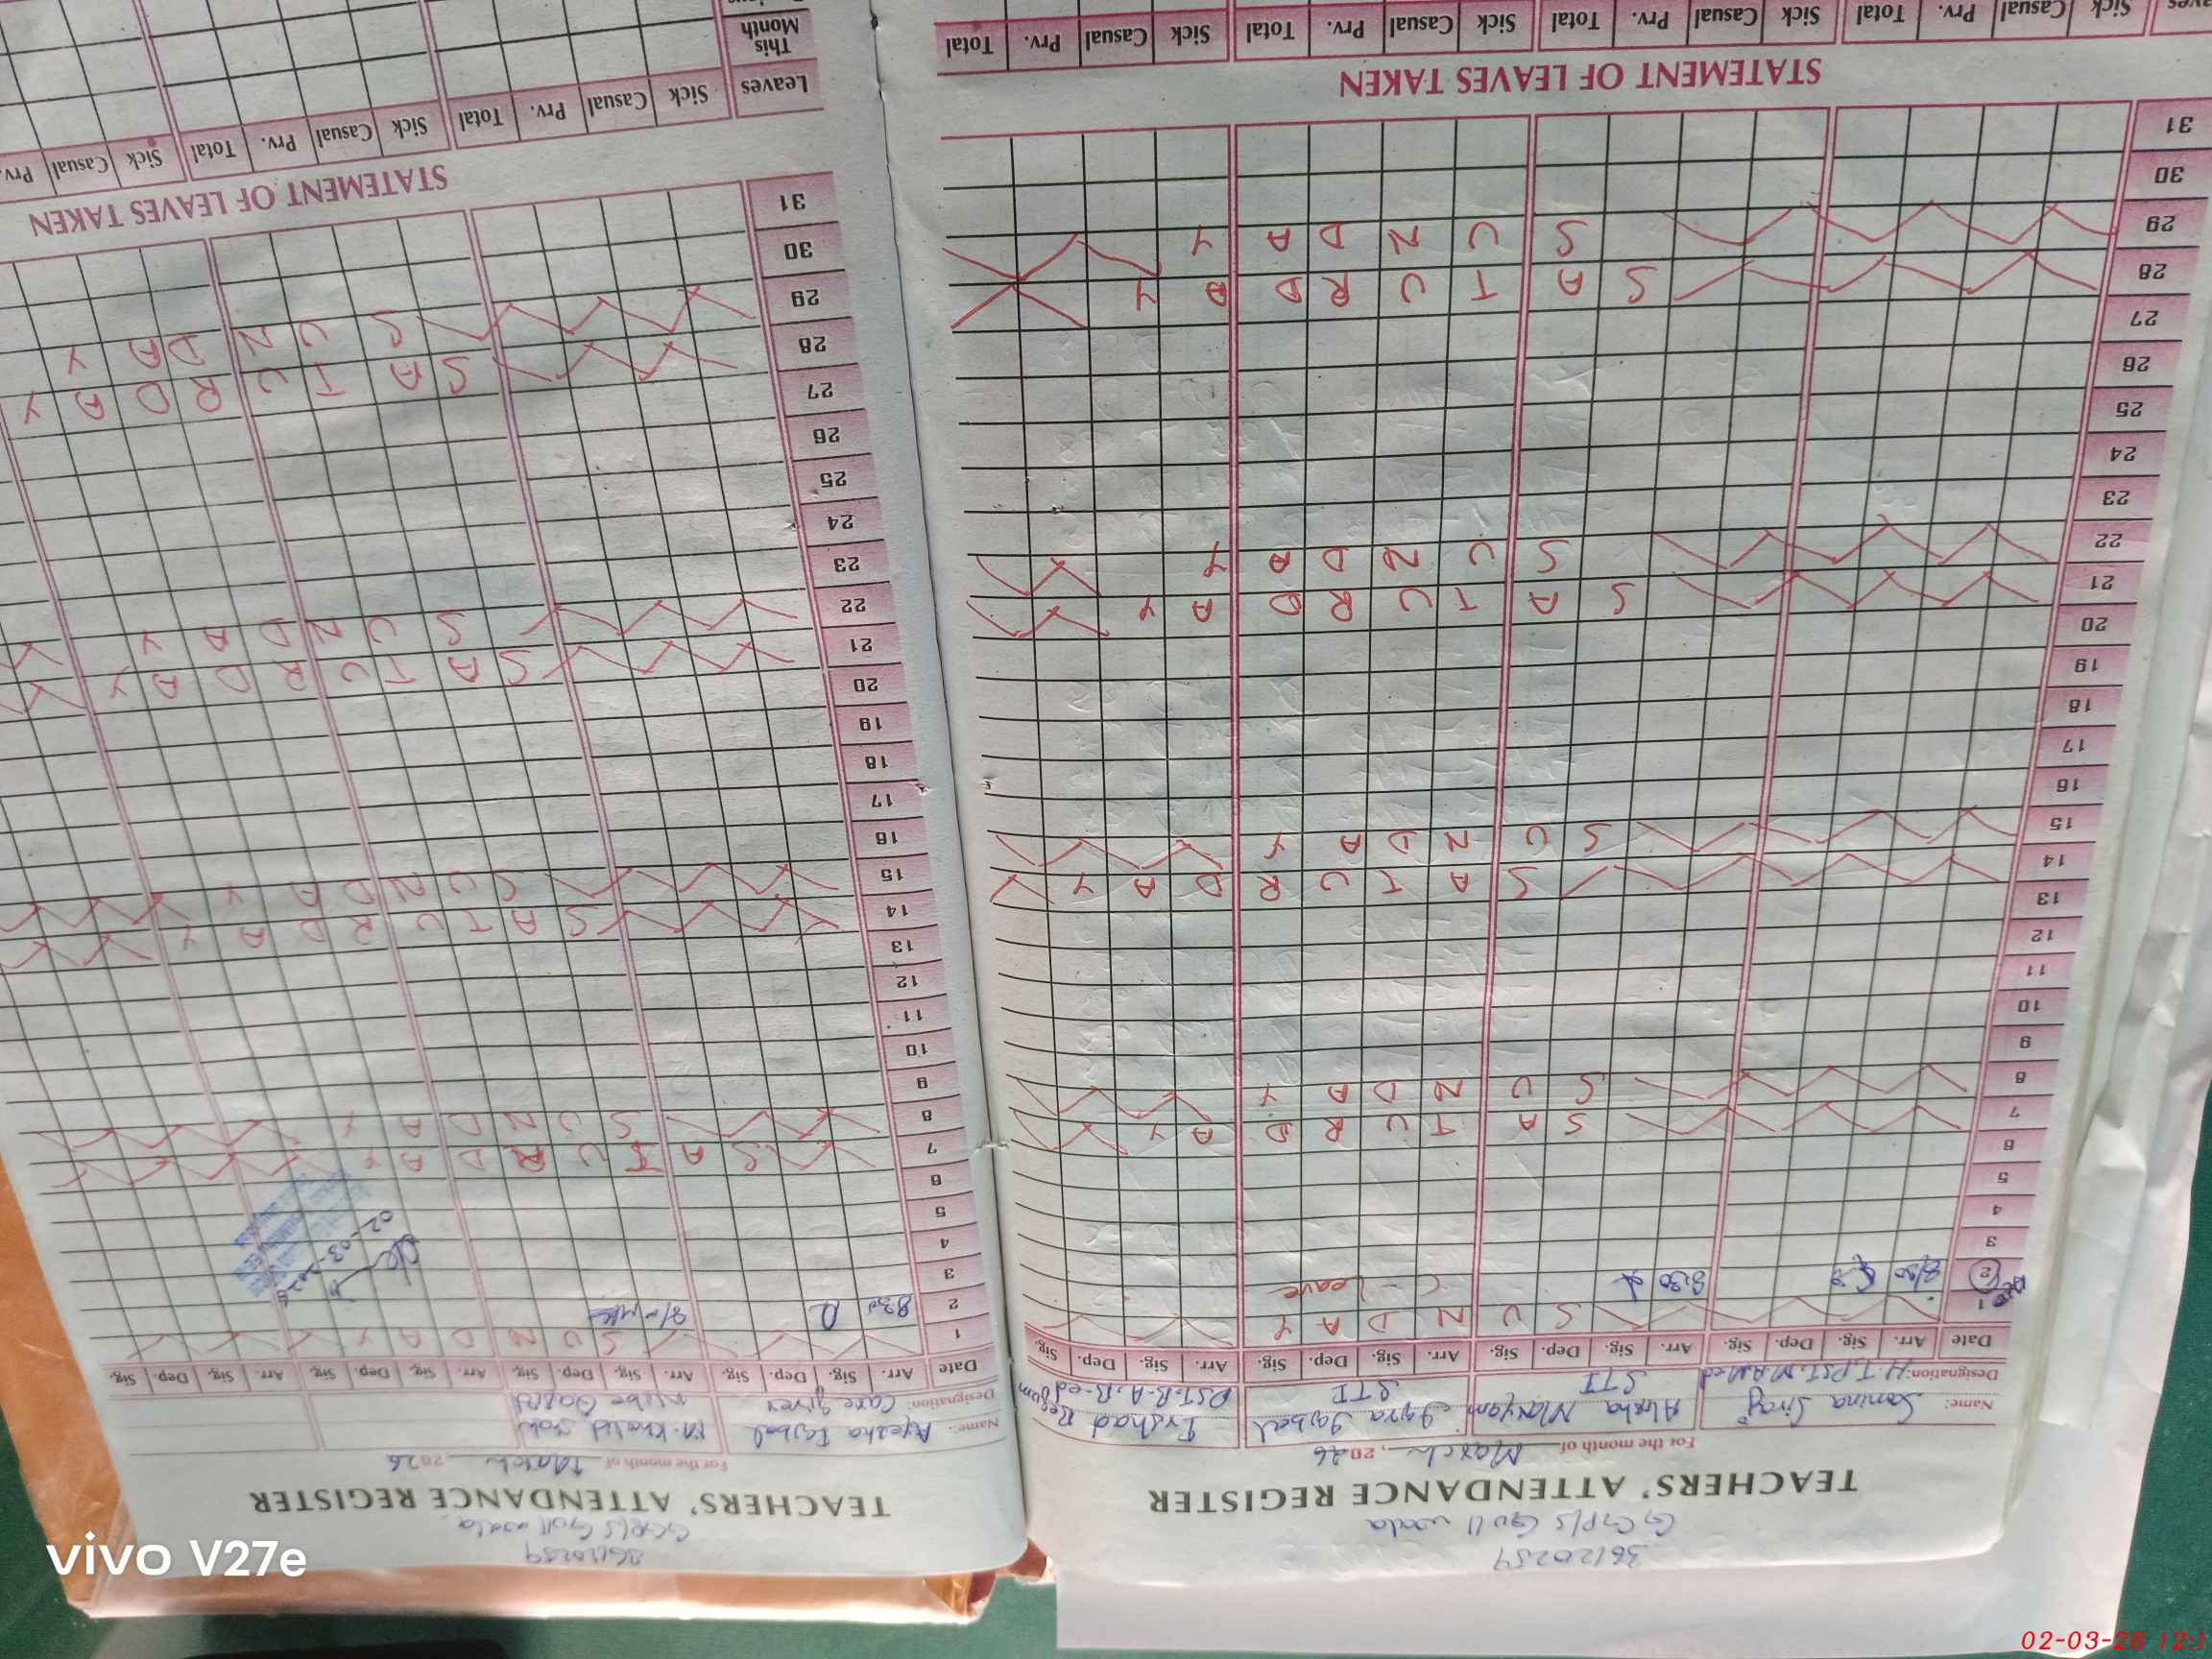 36120259
GGP/S Gull wala
TEACHERS' ATTENDANCE REGISTER
For the month of March, 2026
Name: Samina Siraj Alisha Maryam Iqra Iqbal Irshad Begum
Designation: H.T.PST.M.A.M.ed STI STI P.S.T.B.A.B-ed
Date Arr. Sig. Dep. Sig. Arr. Sig. Dep. Sig. Arr. Sig. Dep. Sig. Arr. Sig. Dep. Sig.
1 SUNDAY
2 8:30 8:30 C-Leave
3
4
5
6
7 SATURDAY
8 SUNDAY
9
10
11
12
13
14 SATURDAY
15 SUNDAY
16
17
18
19
20
21 SATURDAY
22 SUNDAY
23
24
25
26
27
28 SATURDAY
29 SUNDAY
30
31
STATEMENT OF LEAVES TAKEN
Sick Casual Prv. Total Sick Casual Prv. Total Sick Casual Prv. Total Sick Casual Prv. Total
36120259
GGP/S Gull wala
TEACHERS' ATTENDANCE REGISTER
For the month of March 2026
Name: Ayesha Iqbal M. Khalid
Designation: Care giver
Date Arr. Sig. Dep. Sig. Arr. Sig. Dep. Sig. Arr. Sig. Dep. Sig. Arr. Sig. Dep. Sig.
1 SUNDAY
2 8:30
3
02-03-2026
4
5
6
7 SATURDAY
8 SUNDAY
9
10
11
12
13
14 SATURDAY
15 SUNDAY
16
17
18
19
20
21 SATURDAY
22 SUNDAY
23
24
25
26
27
28 SATURDAY
29 SUNDAY
30
31
STATEMENT OF LEAVES TAKEN
Leaves Sick Casual Prv. Total Sick Casual Prv. Total Sick Casual Prv.
This Month
vivo V27e
02-03-26 12:1